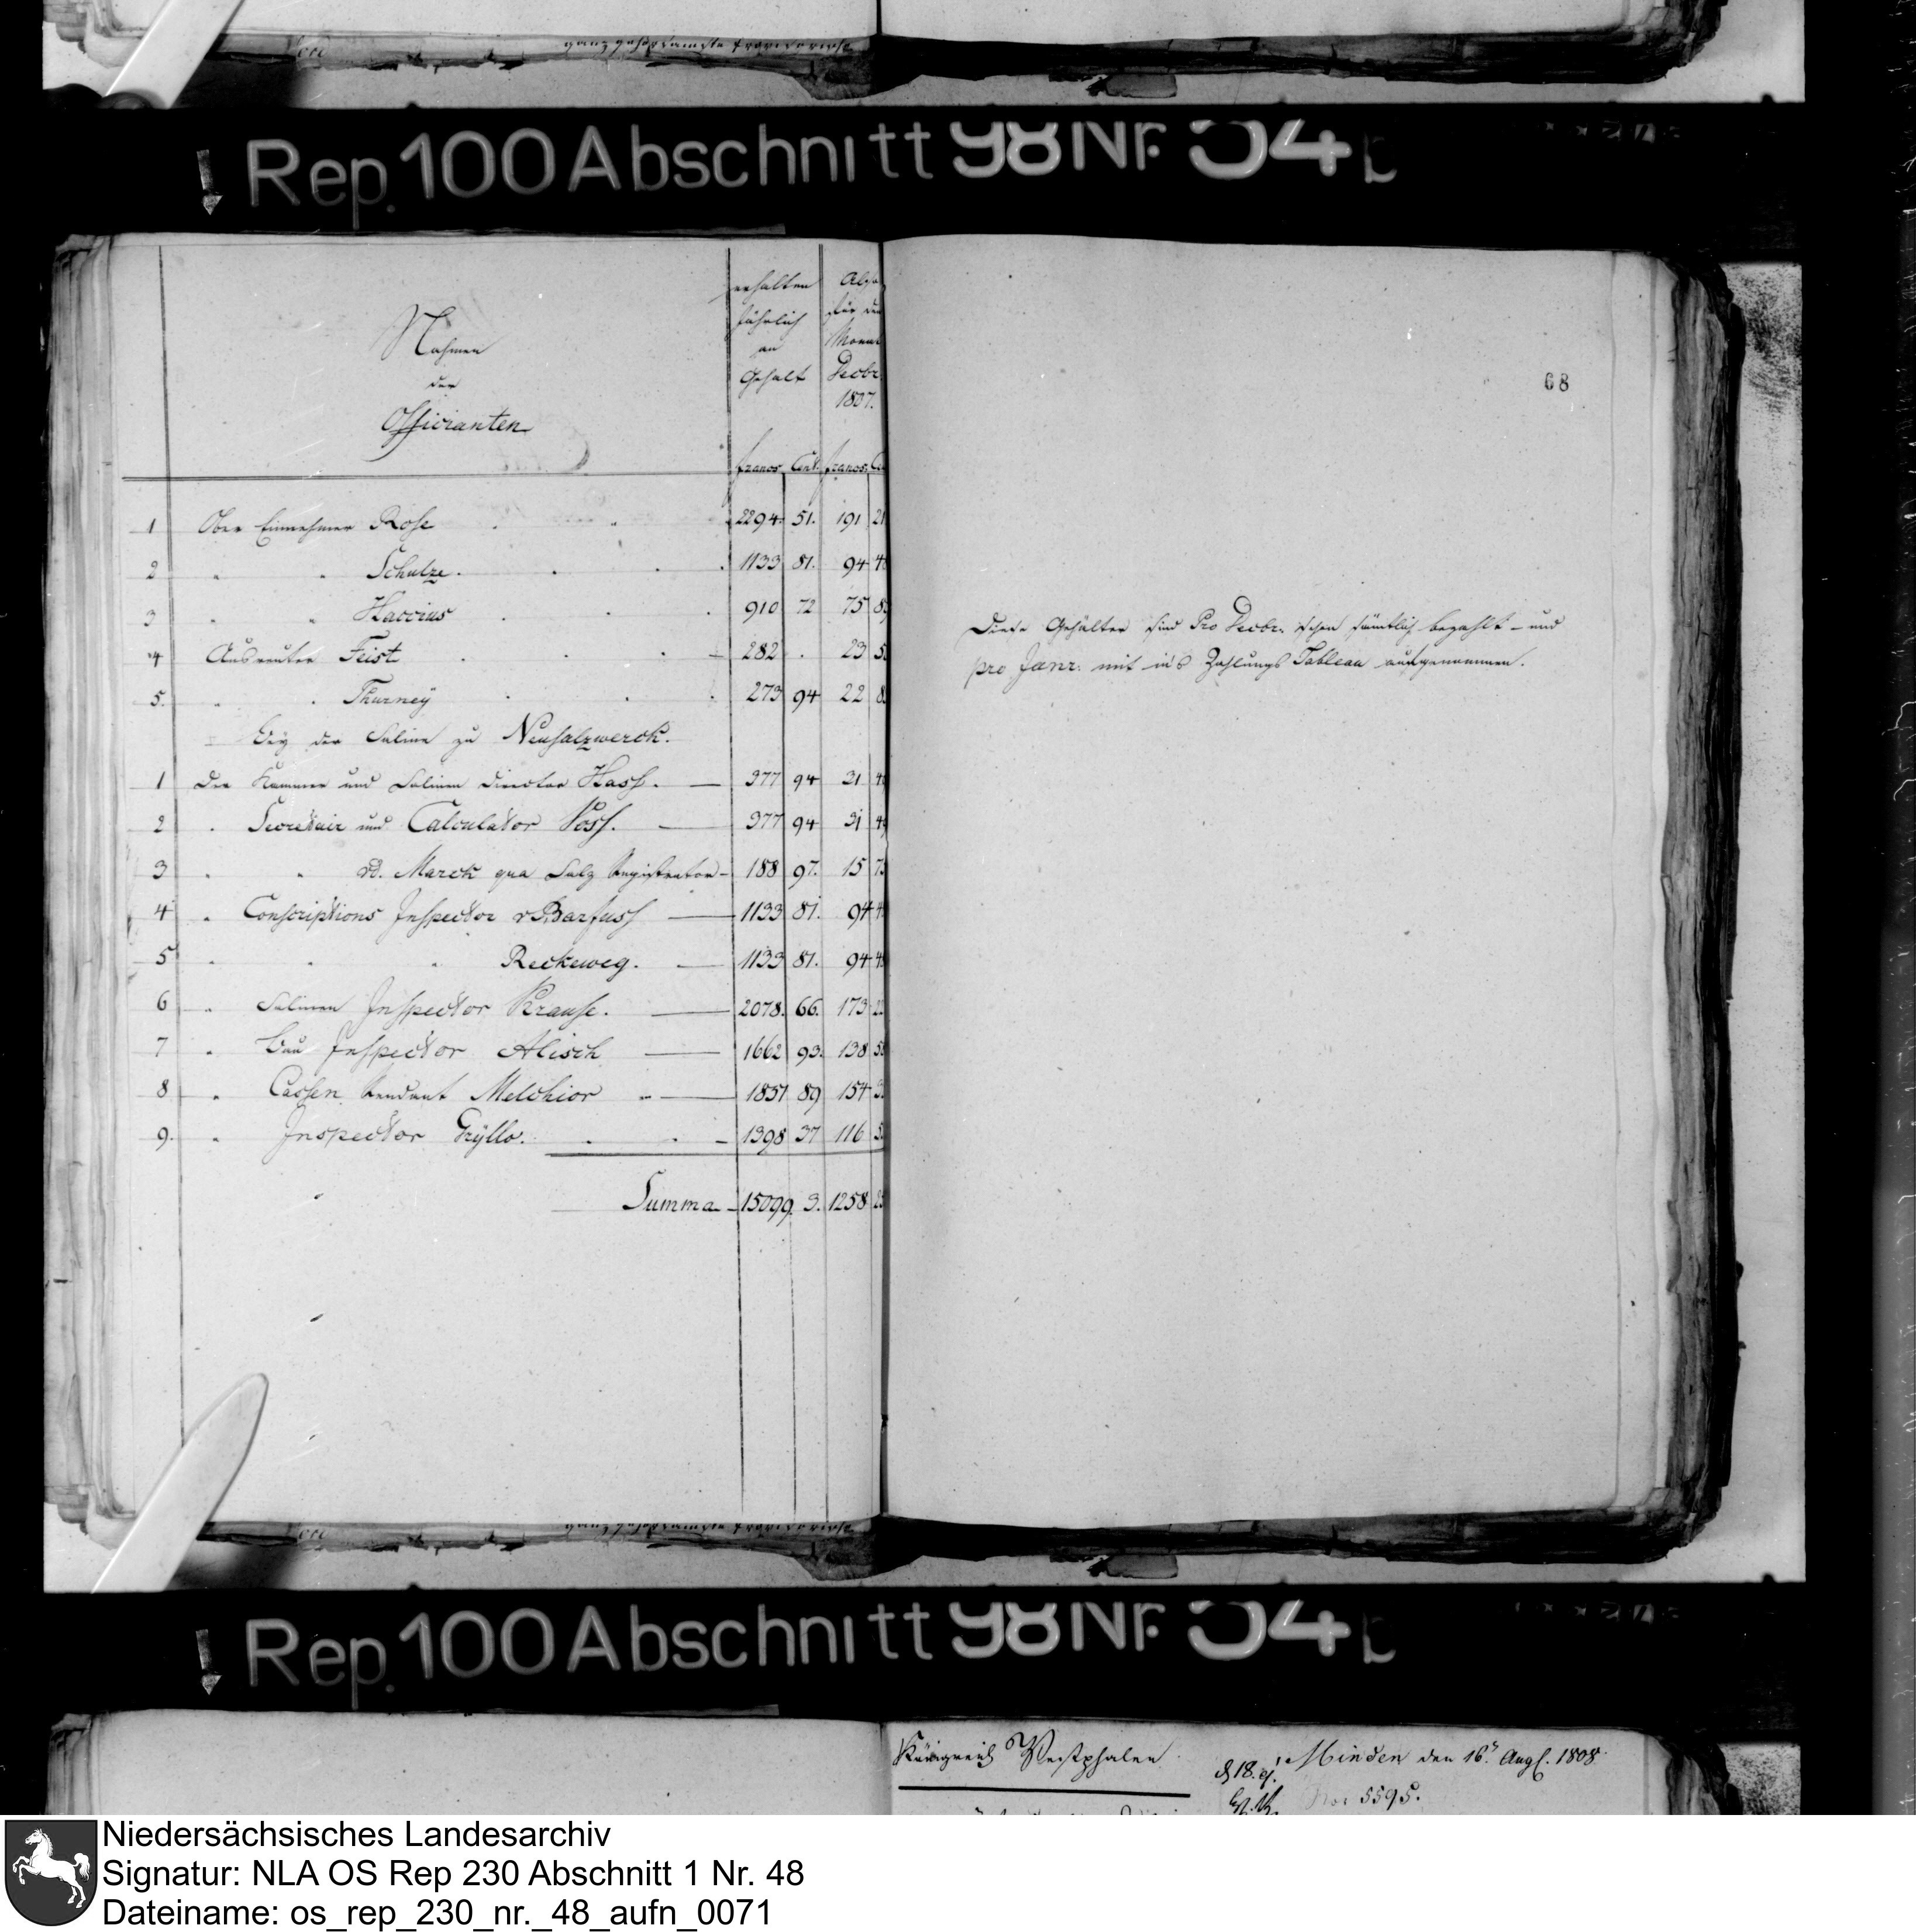 ganz gehorsamste
Rep. 100 Abschnitt 98 Nr. 54
Nahmen
der
Officianten
erhalten
jährlich
an
Gehalt
francs Cent.
Also
für den
Monat
Decbr.
1807.
francs. Ce
1 Ober Einnehmer Rose 2294. 51. 191 21
2 " " Schulze. 1133 81. 94 4
3 " " Haccius 910 72 75 8
4 Ausreuter Feist 282 . 23 5
5. " . Thurney 273 94 22 8
Bey der Saline zu Neusalzwerck.
1 Der Kammer und Salinen Director Hass. 377 94 31 4
2 . Secretair und Calculator Poss. 377 94 31 4
3 " " Marck qua Salz Registrator 188 97. 15 7
4 " Conscriptions Inspector v Barfuss 1133 81. 94 4
5 " " " Reckeweg. 1133 81. 94 4
6 " Salinen Inspector Krause. 2078. 66. 173 22
7 " Bau Inspector Alisch 1662 93. 138 5
8 " Cassen Rendant Melchior 1851 89 154 3
9. " Inspector Gryllo. 1398 37 116 5
Summa 15099. 3. 1258 25
68
Diese Gehälter sind Pro Decbr. schon sämtlich bezahlt - und
pro Janr. mit in's Zahlungs Tableau aufgenommen.
ganz gehorsamste
Rep. 100 Abschnitt 98 Nr. 54
Königreich Westphalen.
Minden den 16ⁿ Augs. 1808
No: 5595.
Niedersächsisches Landesarchiv
Signatur: NLA OS Rep 230 Abschnitt 1 Nr. 48
Dateiname: os_rep_230_nr._48_aufn_0071